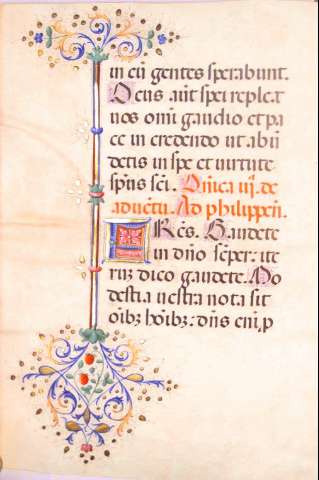 in eū gentes sperabunt.
Deus aūt spei repleat
uos omi gaudio et pa
ce in credendo ut abū
detis in spe et uirtute
spūs sci. Dnica iij. de
aduētu. Ad philippen̄.
FRēs. Gaudete
in dño semper: ite
rum dico gaudete. Mo
destia uestra nota sit
oībꝫ hoībꝫ: dñs eni, p